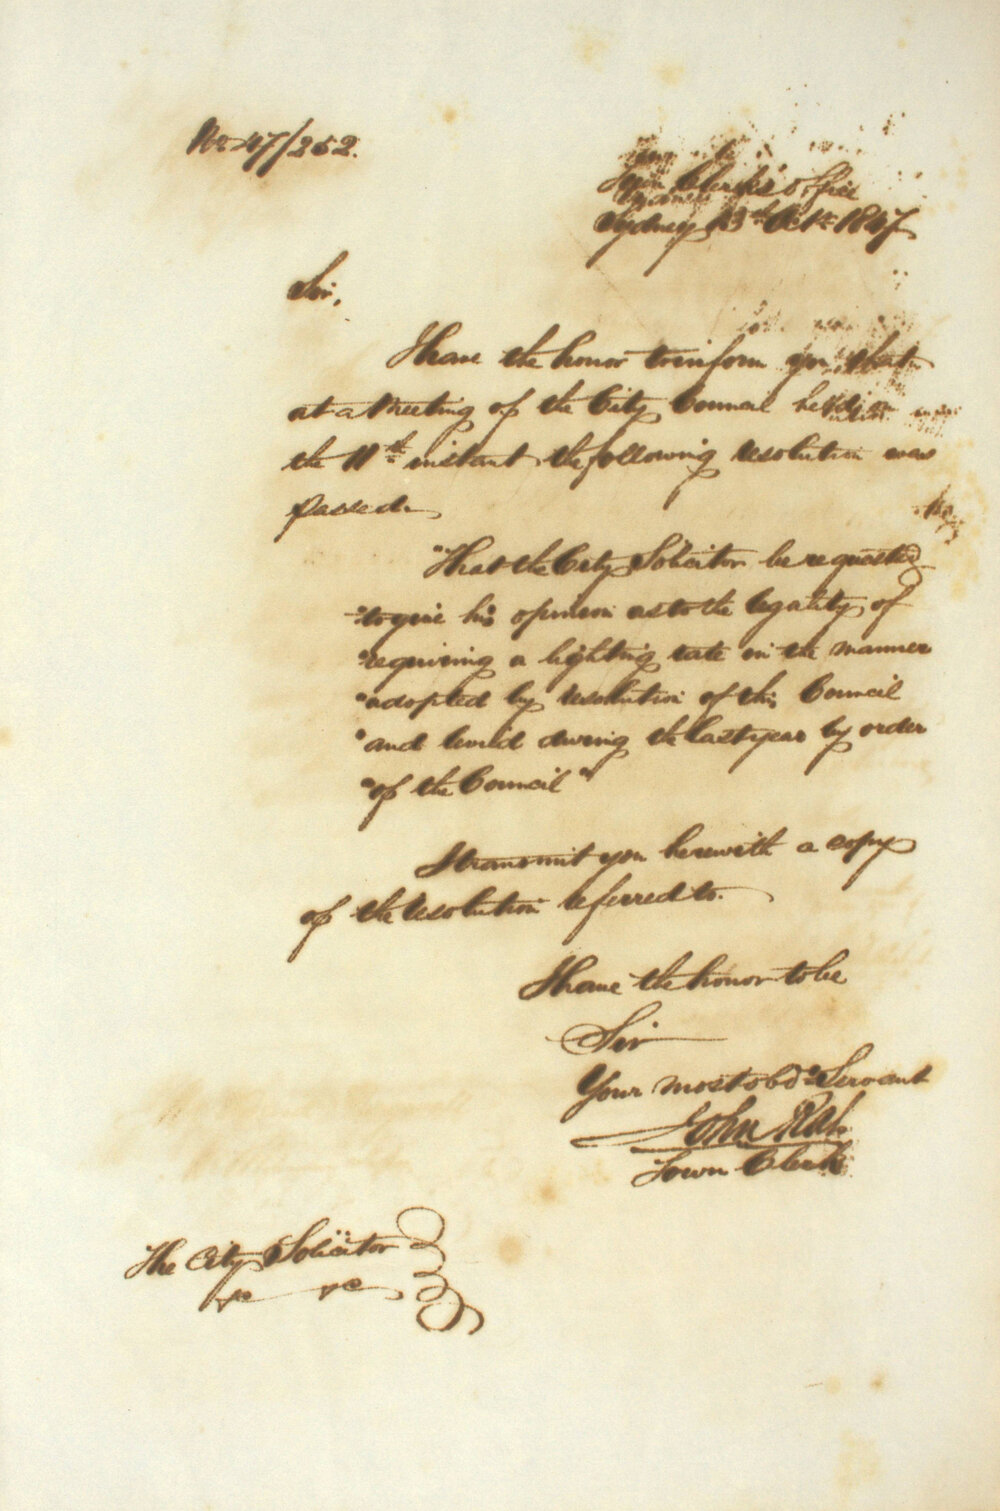 No 47/252.
Town Clerk's Office
Sydney 13th Oct 1847
Sir,
I have the honor to inform you that
at a Meeting of the City Council held on
the 11th instant the following resolution was
passed.
"That the City Solicitor be requested
"to give his opinion as to the legality of
"requiring a lighting rate in the manner
"adopted by resolution of this Council
"and levied during the last year by order
"of the Council"
I transmit you herewith a copy
of the resolution referred to.
I have the honor to be
Sir
Your most obdt Servant
John Rae
Town Clerk
The City Solicitor
&c &c